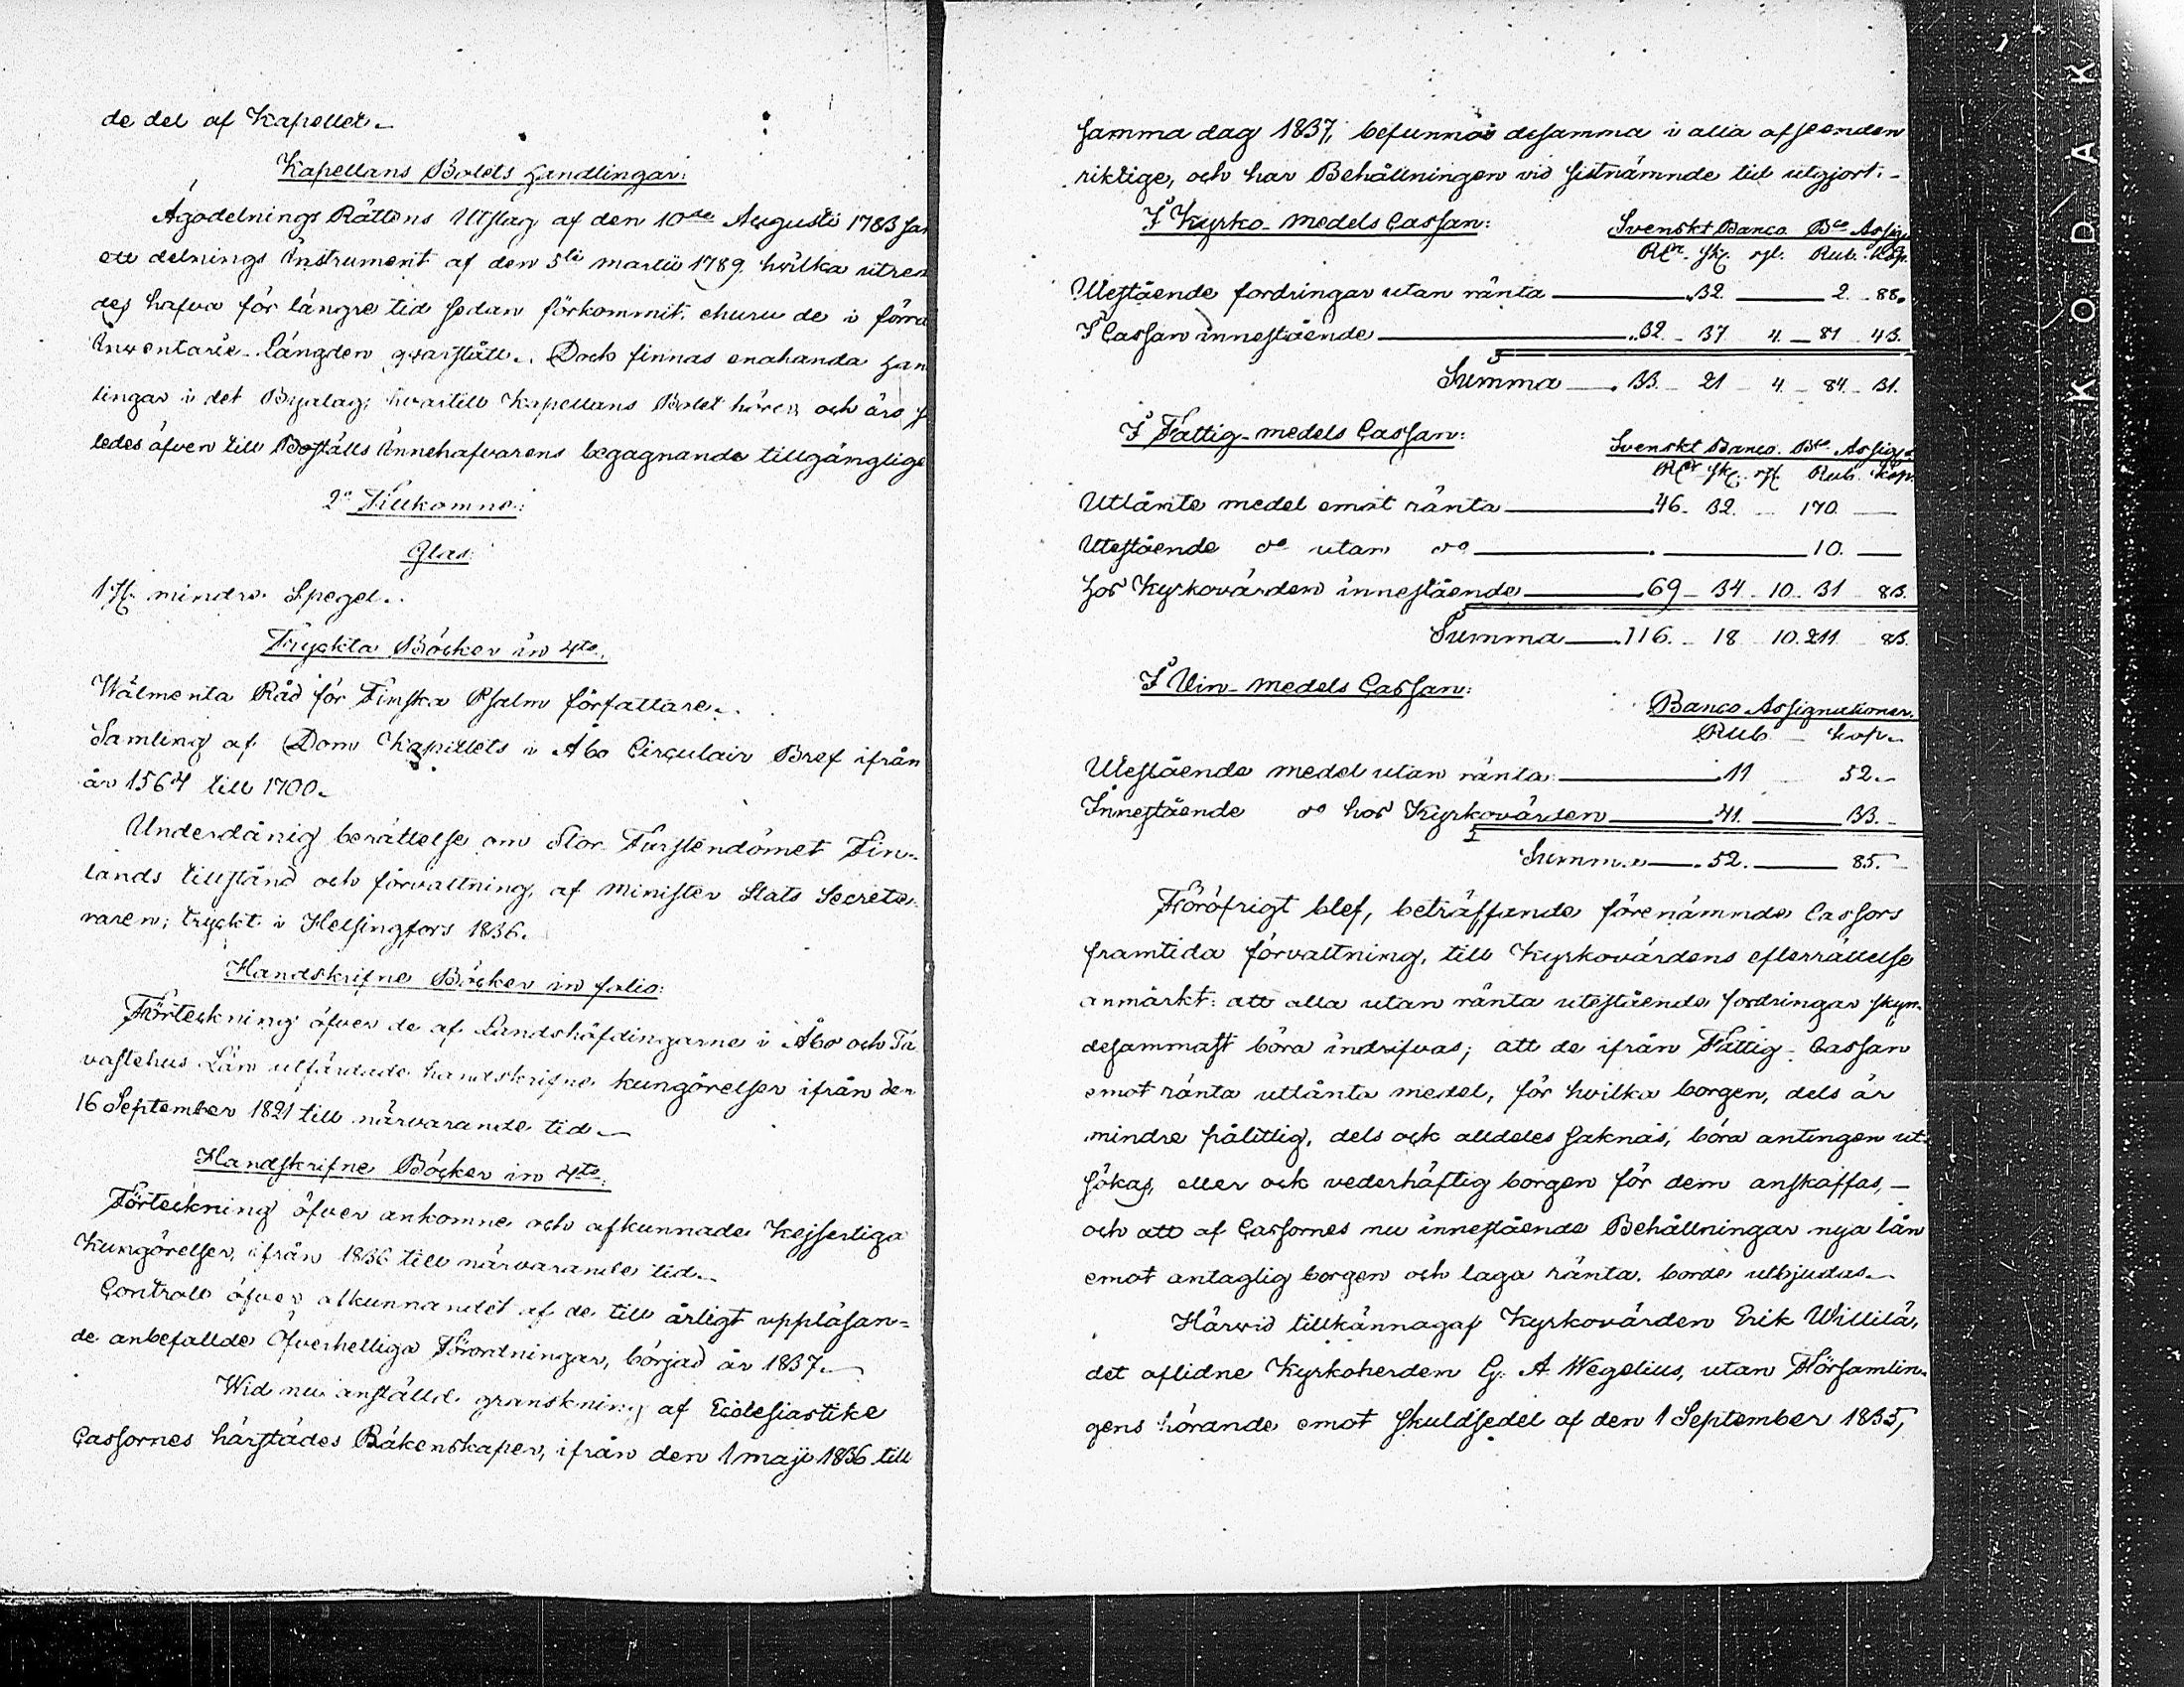 de del af Kapellet.
Kapellans Bolets Handlingar:
Ägodelnings Rättens Utslag af den 10de Augusti 1783 sa
ett delnings Instrument af den 5te martii 1789. hvilka utren
des hafva för längre tid sedan förkommit. ehuru de i förra
Inventarie-Längden qvarstått. Dock finnas enahanda Han
lingar i det Byalag, hvartill Kapellans Bolet hörer, och äro s
ledes äfven till Boställs Innehafvarens begagnande tillgänglige
2o Tillkomne:
Glas:
1 St. mindre Spegel.
Tryckta Böcker in 4to.
Wälmenta Råd för Finska Psalm författare.
Samling af Dom Kapitlets i Åbo Circulair Bref ifrån
år 1564 till 1700.
Underdånig berättelse om Stor Furstendömet Fin-
lands tillstånd och förvaltning, af Minister Stats Secrete-
raren; tryckt i Helsingfors 1836.
Handskrifne Böcker in folio:
Förteckning öfver de af Landshöfdingarne i Åbo och Ta
vastehus Län utfärdade handskrifne kungörelser ifrån den
16 September 1821 till närvarande tid.
Handskrifne Böcker in 4to.
Förteckning öfver ankomne och afkunnade Kejserliga
Kungörelser, ifrån 1836 till närvarande tid.
Controll öfver afkunnandet af de till årligt uppläsan=
de anbefallde Öfverhetliga Förordningar, börjad år 1837.
Wid nu anställd granskning af Ecclesiastike
Cassornes härstädes Räkenskaper, ifrån den 1 maji 1836 till
samma dag 1837, befunnos desamma i alla afseenden
riktige, och har Behållningen vid sistnämnde tid utgjort:
I Kyrko-medels Cassan: Svenskt Banco Bco Assig.
Rdr. sk. rst. Rub. kop.
Utestående fordringar utan ränta 32. 2. 88.
I Cassan innestående 32. 37 4. 81 43.
Summa 33. 21 4. 84. 31.
I Fattig-medels Cassan: Svenskt Banco. Bco Assig.
Rdr sk. rst. Rub. kop.
Utlånte medel emot ränta 46. 32. 170.
Utestående do utan do 10.
Hos Kyrkovärden innestående 69 34 10. 31 83.
Summa 116. 18 10. 211 83.
I Vin-medels Cassan: Banco Assignationer.
Rub. kop.
Utestående medel utan ränta: 11 52.
Innestående do hos Kyrkovärden 41. 33.
Summa 52. 85.
Föröfrigt blef, beträffande förenämnde Cassors
framtida förvaltning, till Kyrkovärdens efterrättelse
anmärkt: att alla utan ränta utestående fordringar skyn-
desammast böra indrifvas; att de ifrån Fattig-Cassan
emot ränta utlånta medel, för hvilka borgen, dels är
mindre pålitlig, dels ock alldeles saknas, böra antingen ut-
sökas, eller ock vederhäftig borgen för dem anskaffas,
och att af Cassornes nu innestående Behållningar nya lån
emot antaglig borgen och laga ränta, borde utbjudas.
Härvid tillkännagaf Kyrkovärden Erik Willilä,
det aflidne Kyrkoherden G. A. Wegelius, utan Församlin-
gens hörande emot skuldsedel af den 1 September 1835,
KODAK